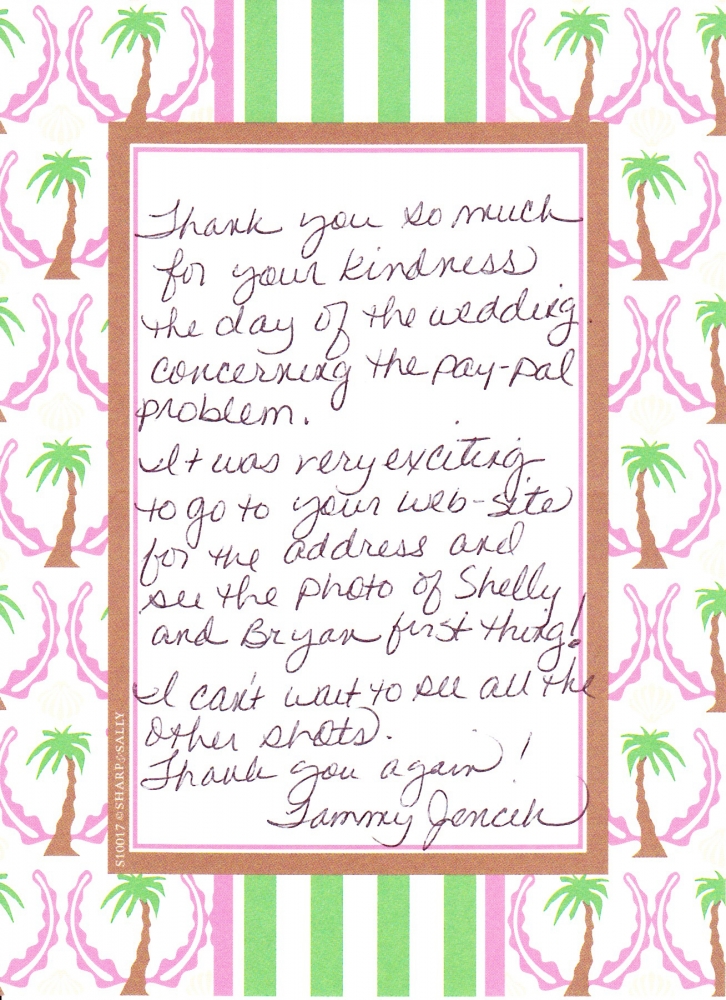 Thank you so much
for your kindness
the day of the wedding.
concerning the pay-pal
problem.
It was very exciting
to go to your web-site
for the address and
see the photo of Shelly
and Bryan first thing!
I can't wait to see all the
other shots.
Thank you again!
Tammy Jencik
S10017 © SHARP & SALLY